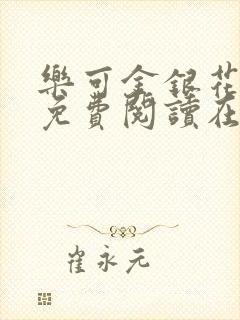 樂可金銀花
免費閱讀在
崔永元